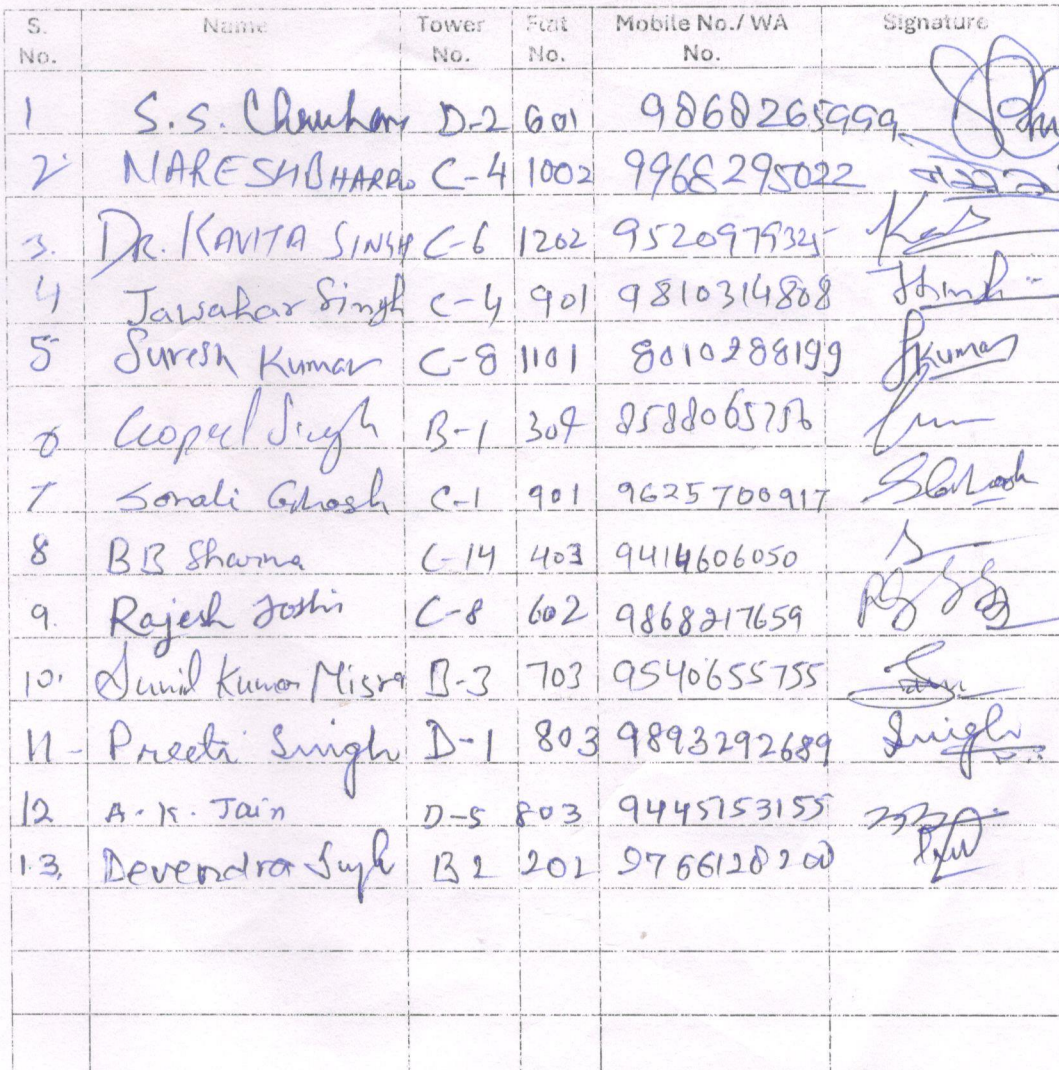 S. No. Name Tower No. Flat No. Mobile No./ WA No. Signature
1 S.S. Chauhan D-2 601 9868265999
2 NARESH BHARD C-4 1002 9968295022
3. DR. KAVITA SINGH C-6 1202 9520979325
4 Jawahar Singh C-4 901 9810314808
5 Suresh Kumar C-8 1101 8010288199 Kumar
6 Gopal Singh B-1 304 8588065756
7 Sonali Ghosh C-1 901 9625700917
8 BB Sharma C-14 403 9414606050
9. Rajesh Joshi C-8 602 9868217659
10. Sunil Kumar Misra B-3 703 9540655755
11- Preeti Singh D-1 803 9893292689 Singh
12 A.K. Jain D-5 803 9445153155
13. Devendra Singh B2 202